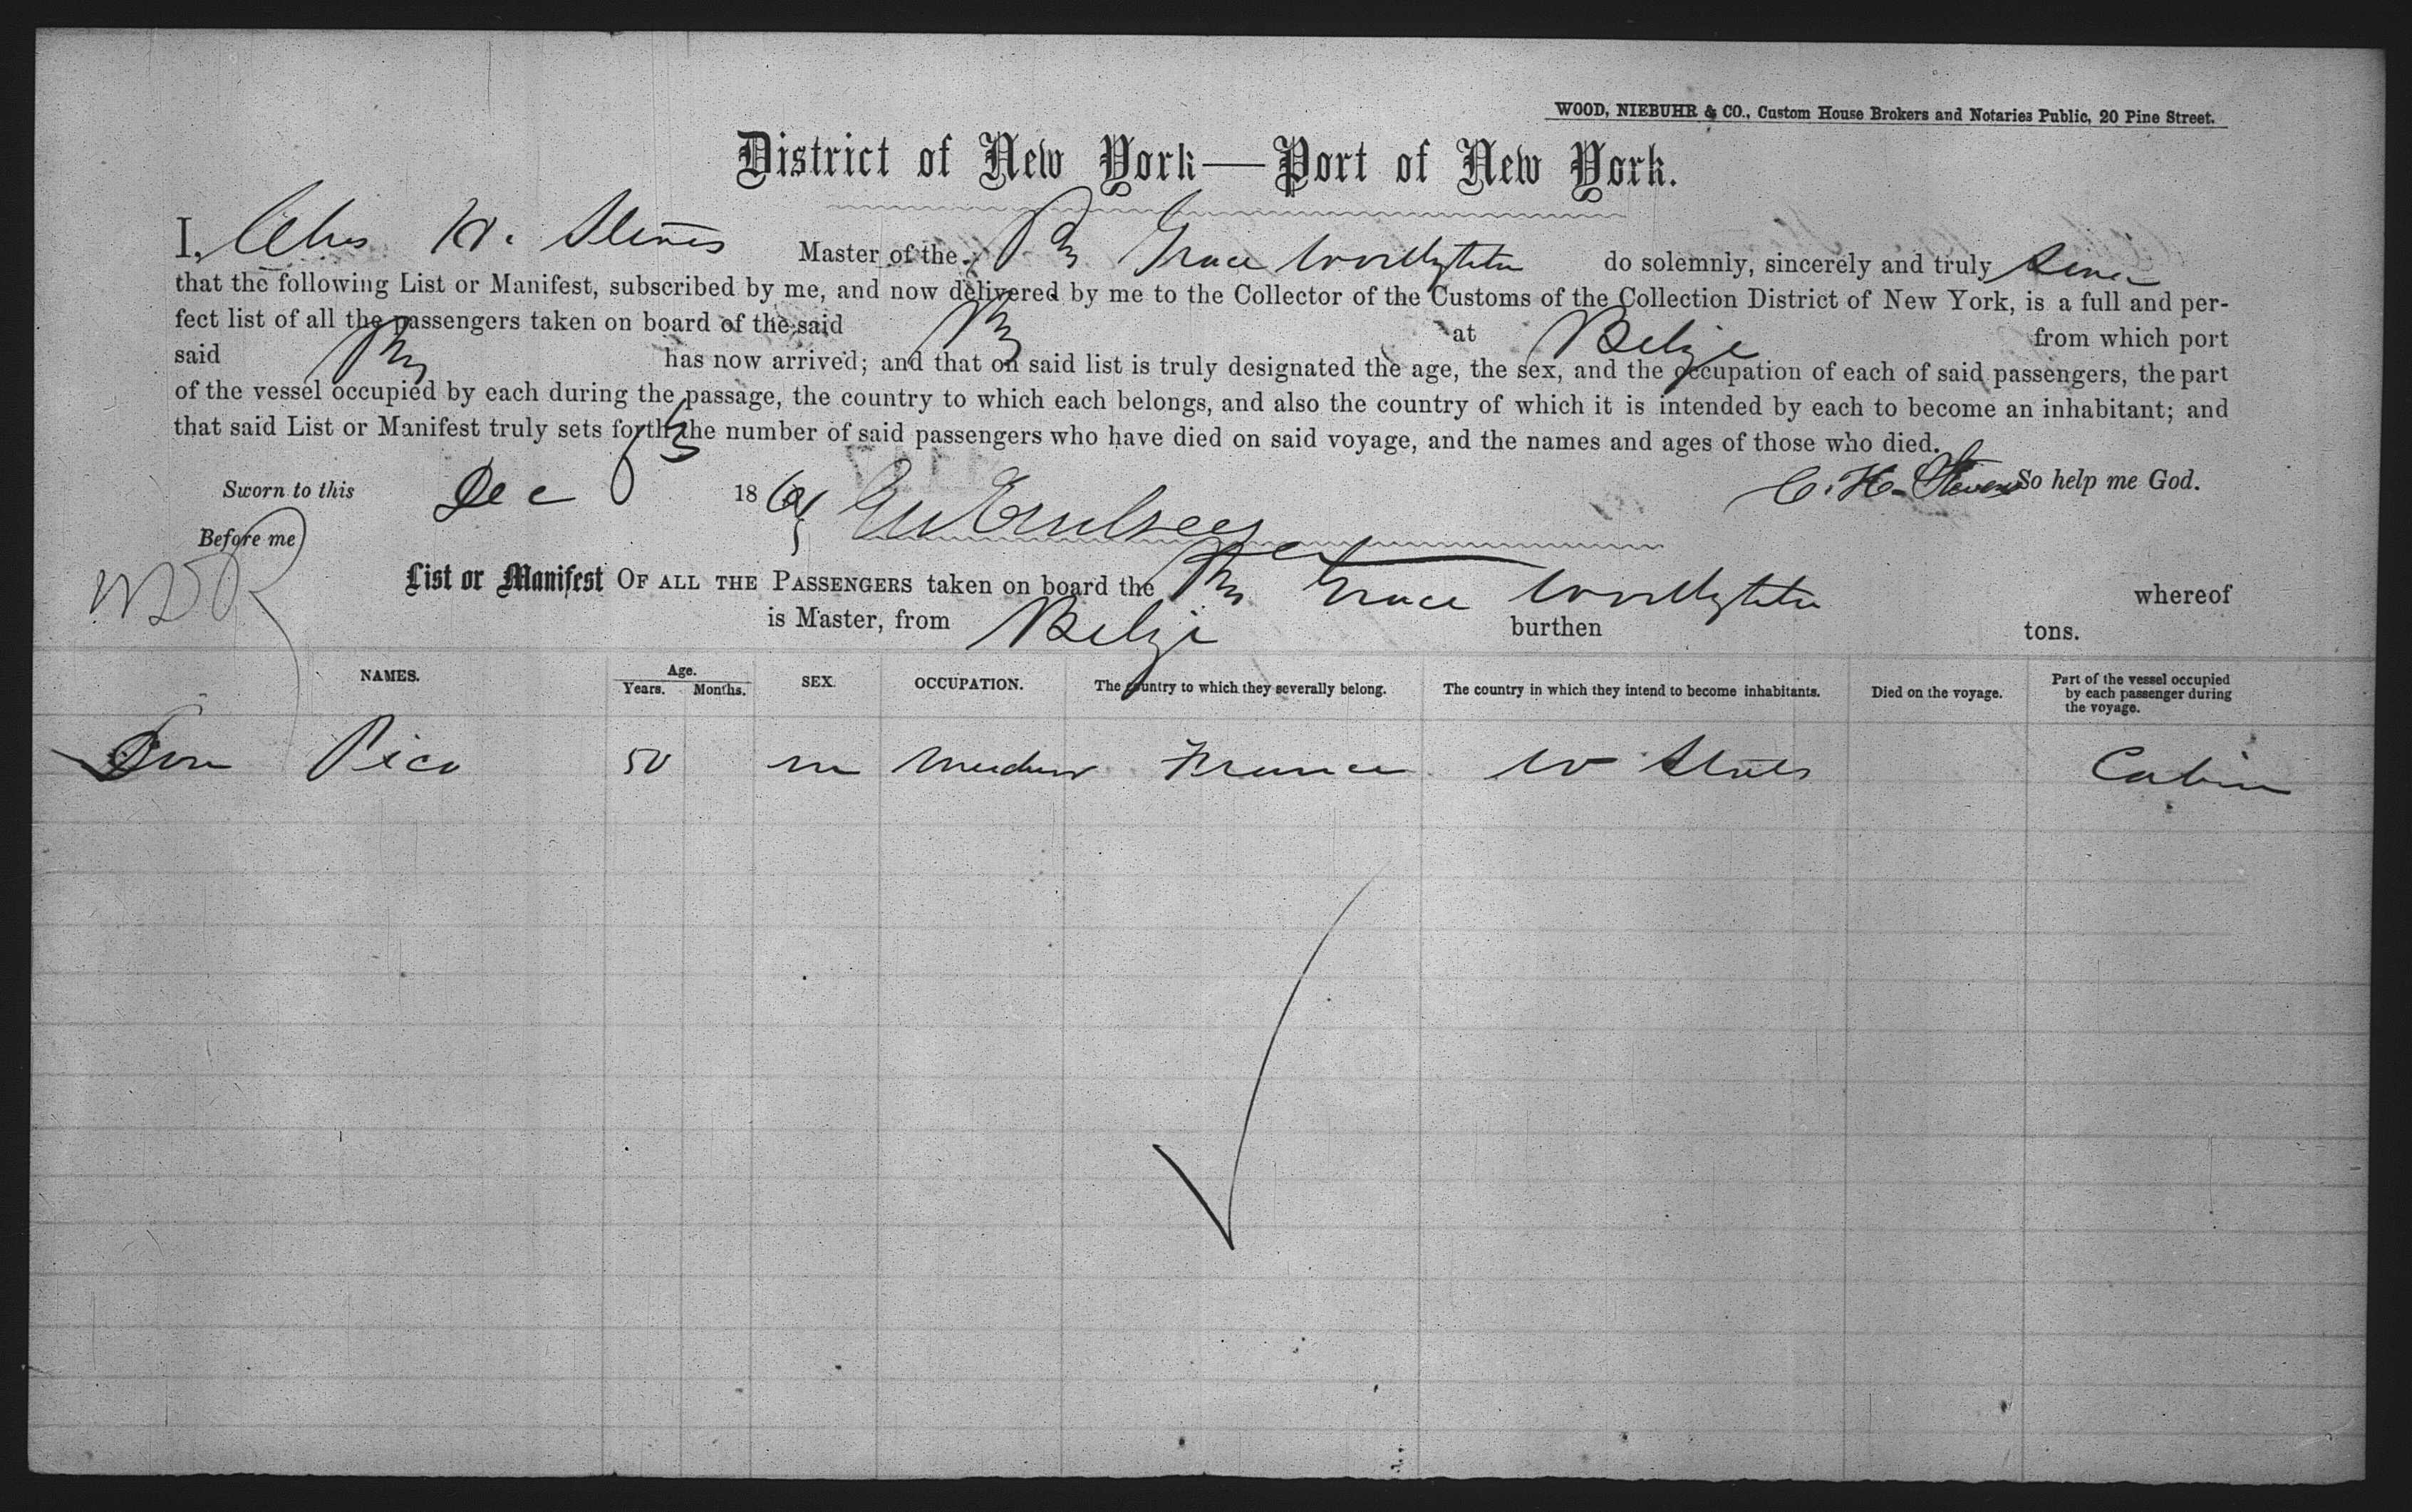 WOOD, NIEBUHR & CO., Custom House Brokers and Notaries Public, 20 Pine Street.
District of New York—Port of New York.
I, Chs H. Stevens Master of the Grace Worthington do solemnly, sincerely and truly Swear
that the following List or Manifest, subscribed by me, and now delivered by me to the Collector of the Customs of the Collection District of New York, is a full and per-
fect list of all the passengers taken on board of the said at Belize from which port
said has now arrived; and that on said list is truly designated the age, the sex, and the occupation of each of said passengers, the part
of the vessel occupied by each during the passage, the country to which each belongs, and also the country of which it is intended by each to become an inhabitant; and
that said List or Manifest truly sets forth the number of said passengers who have died on said voyage, and the names and ages of those who died.
Sworn to this Dec 1869 C. H. Stevens So help me God.
Before me
List or Manifest OF ALL THE PASSENGERS taken on board the Grace Worthington whereof
is Master, from Belize burthen tons.
NAMES. Age. Years. Months. SEX. OCCUPATION. The country to which they severally belong. The country in which they intend to become inhabitants. Died on the voyage. Part of the vessel occupied by each passenger during the voyage.
Pico 50 m France States Cabin